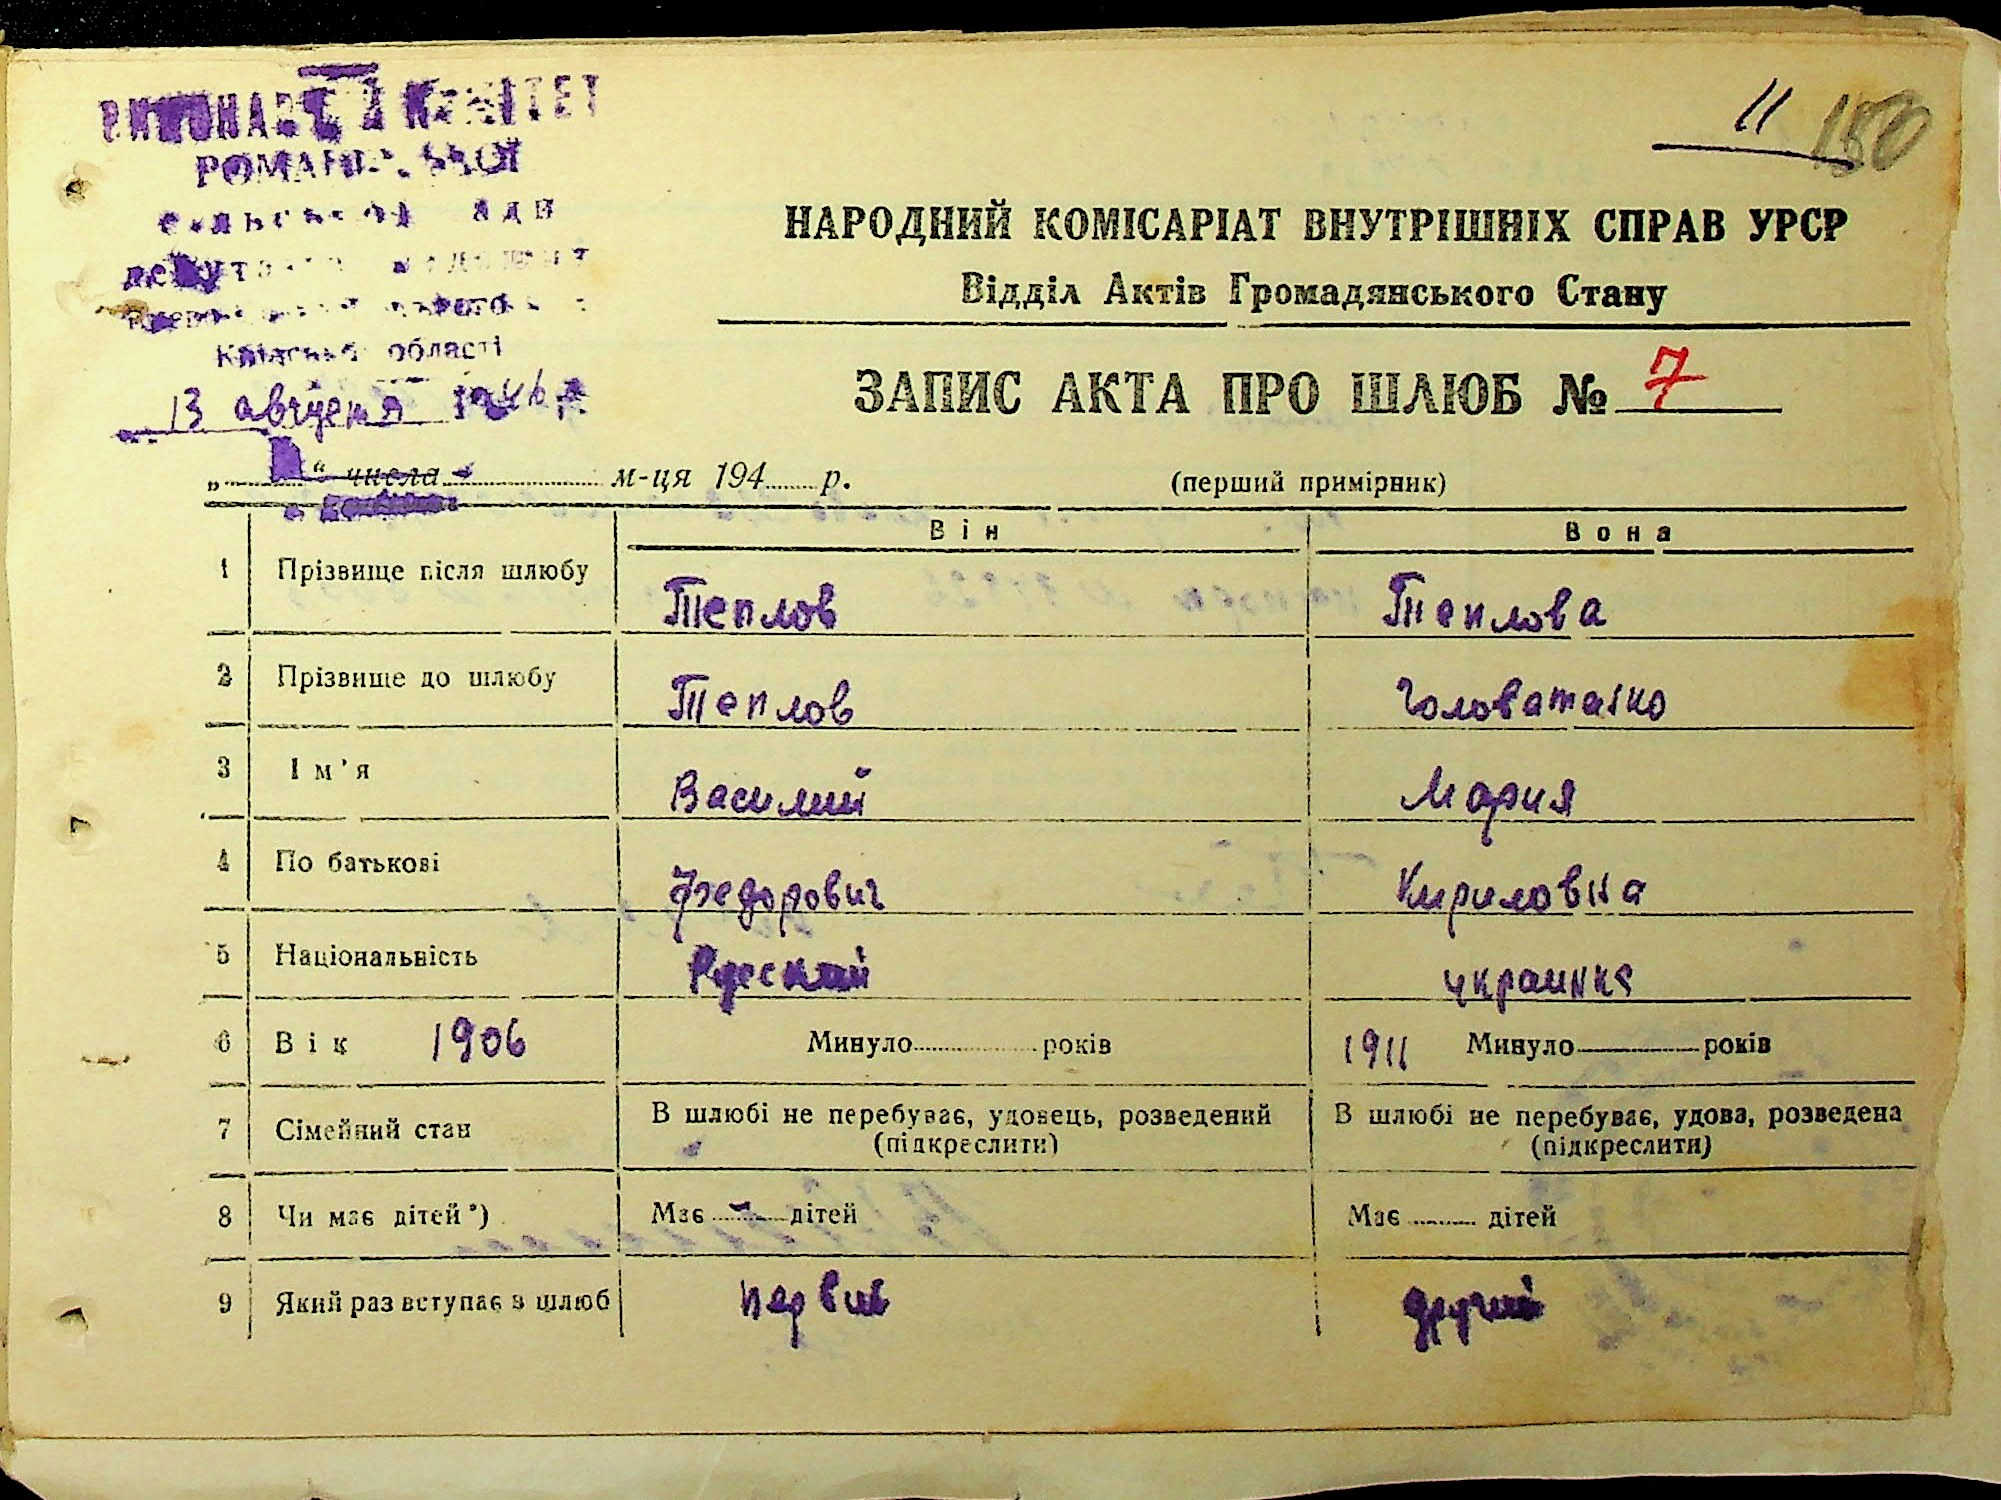 11 150
ВИКОНАВЧ Й КОМІТЕТ
НАРОДНИЙ КОМІСАРІАТ ВНУТРІШНІХ СПРАВ УРСР
Відділ Актів Громадянського Стану
області
13 августа 1946 р.
ЗАПИС АКТА ПРО ШЛЮБ № 7
„ “ числа м-ця 194 р.
(перший примірник)
Він Вона
1 Прізвище після шлюбу Теплов Теплова
2 Прізвище до шлюбу Теплов
3 Ім'я Василий Мария
4 По батькові Федорович Кириловна
5 Національність Русский украинка
6 Вік 1906 Минуло років 1911 Минуло років
7 Сімейний стан В шлюбі не перебуває, удовець, розведений (підкреслити) В шлюбі не перебуває, удова, розведена (підкреслити)
8 Чи має дітей*) Має - дітей Має дітей
9 Який раз вступає в шлюб первий другий